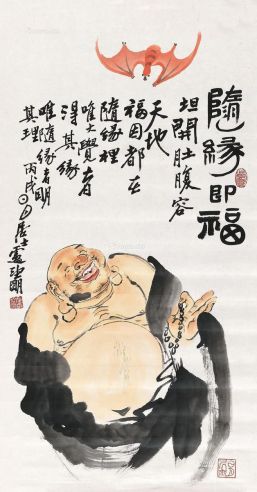 隨緣即福
坦開肚腹容
天地
福因都在
隨緣裡
唯大覺者
得其緣
唯隨緣者明
其理
丙戌
居士